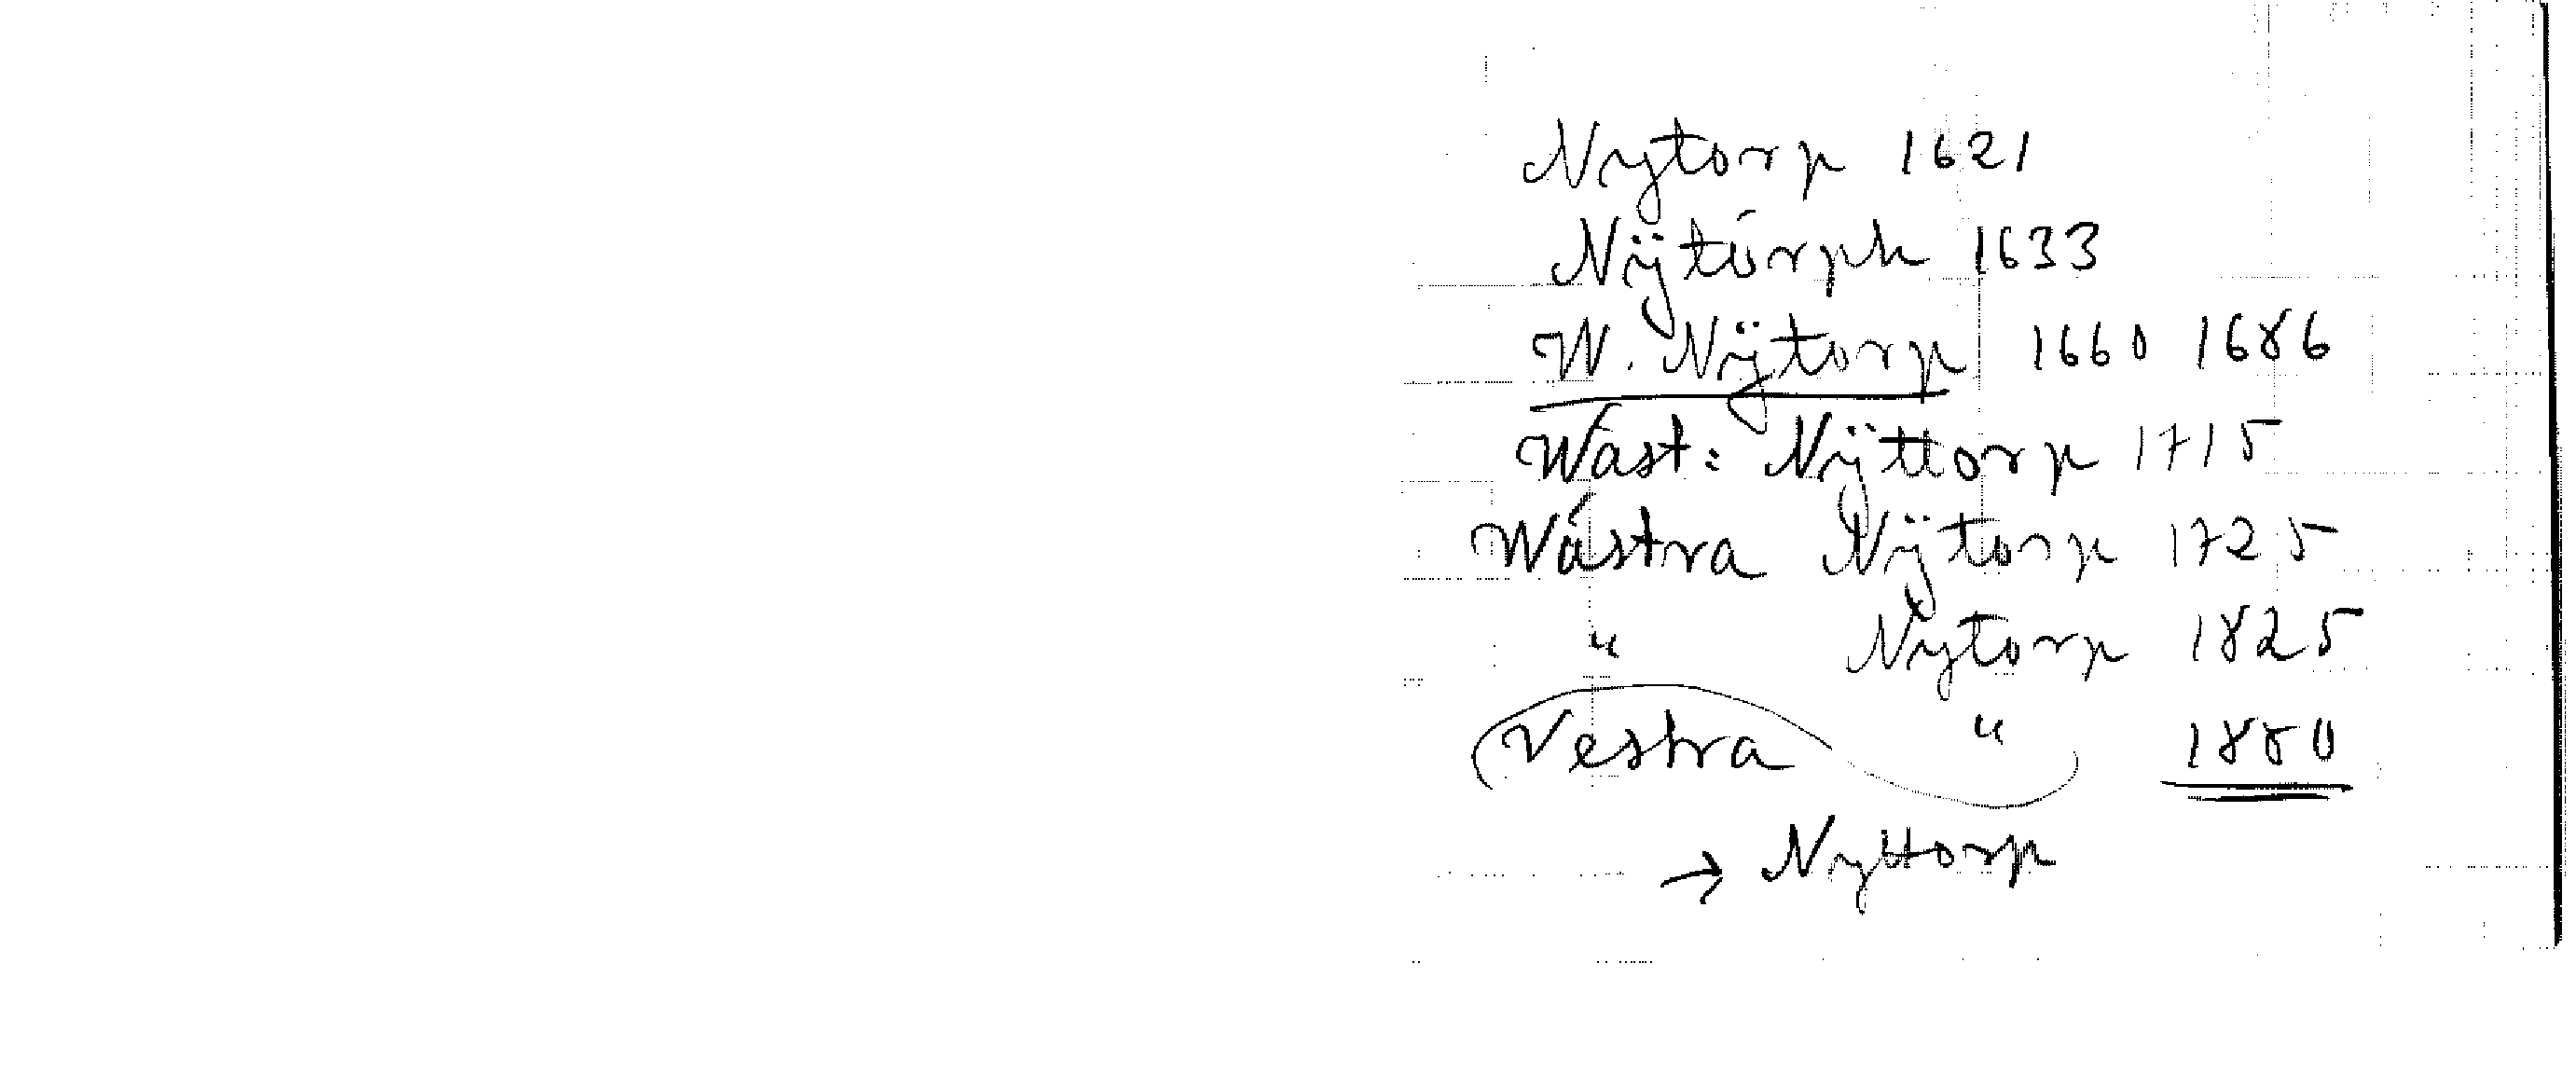 Nytorp 1621
Nÿtórph 1633
W. Nÿtorp 1660 1686
Wäst: Nÿttorp 1715
Wästra Nÿtorp 1725
" Nytorp 1825
Vestra " 1880
→ Nyttorp